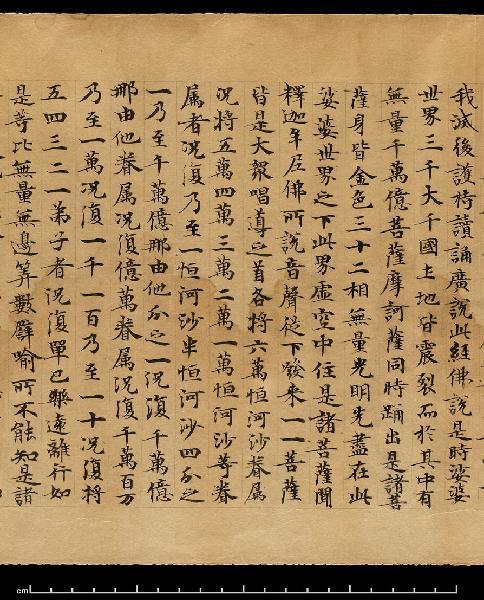 我滅後護持讀誦廣說此經佛說是時娑婆
世界三千大千國土地皆震裂而於其中有
無量千萬億菩薩摩訶薩同時踊出是諸菩
薩身皆金色三十二相無量光明先盡在此
娑婆世界之下此界虛空中住是諸菩薩聞
釋迦牟尼佛所說音聲從下發来一一菩薩
皆是大衆唱導之首各將六萬恒河沙眷属
况將五萬四萬三萬二萬一萬恒河沙等眷
属者况復乃至一恒河沙半恒河沙四分之
一乃至千萬億那由他分之一况復千萬億
那由他眷属况復億萬眷属况復千萬百万
乃至一萬况復一千一百乃至一十况復將
五四三二一弟子者况復單己樂遠離行如
是等比無量無邊筭數譬喻所不能知是諸
cm